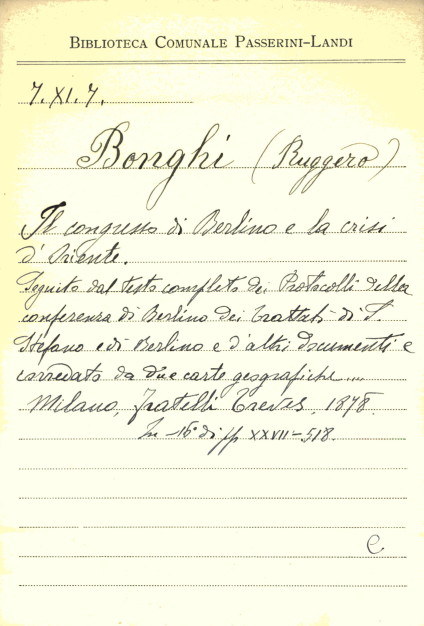 BIBLIOTECA COMUNALE PASSERINI-LANDI
7.XI.7.
Bonghi (Ruggero)
Il congresso di Berlino e la crisi
d'Oriente.
Seguito dal testo completo dei Protocolli della
conferenza di Berlino dei trattati di S.
Stefano e di Berlino e d'altri documenti e
corredato da due carte geografiche ....
Milano, Fratelli Treves, 1878.
In -16° di pp XXVII-518.
C